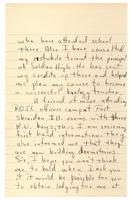 who have attended school
there. Also I have consulted
my
friend the principal
at Golden High. He has sent
my credits up there and helped
me plan my course to become
a successful
teacher.
A friend at more attending
R.O.T.C. officers camp at Fort
Sheridan Ill. rooms with three
N.U. boys, thus I am receiving
first hand information. He
also informed me that they
are now building dormitories.
Sir, I hope you won't think
me to bold when I ask you
if it would be possible for you
to obtain lodging for me at